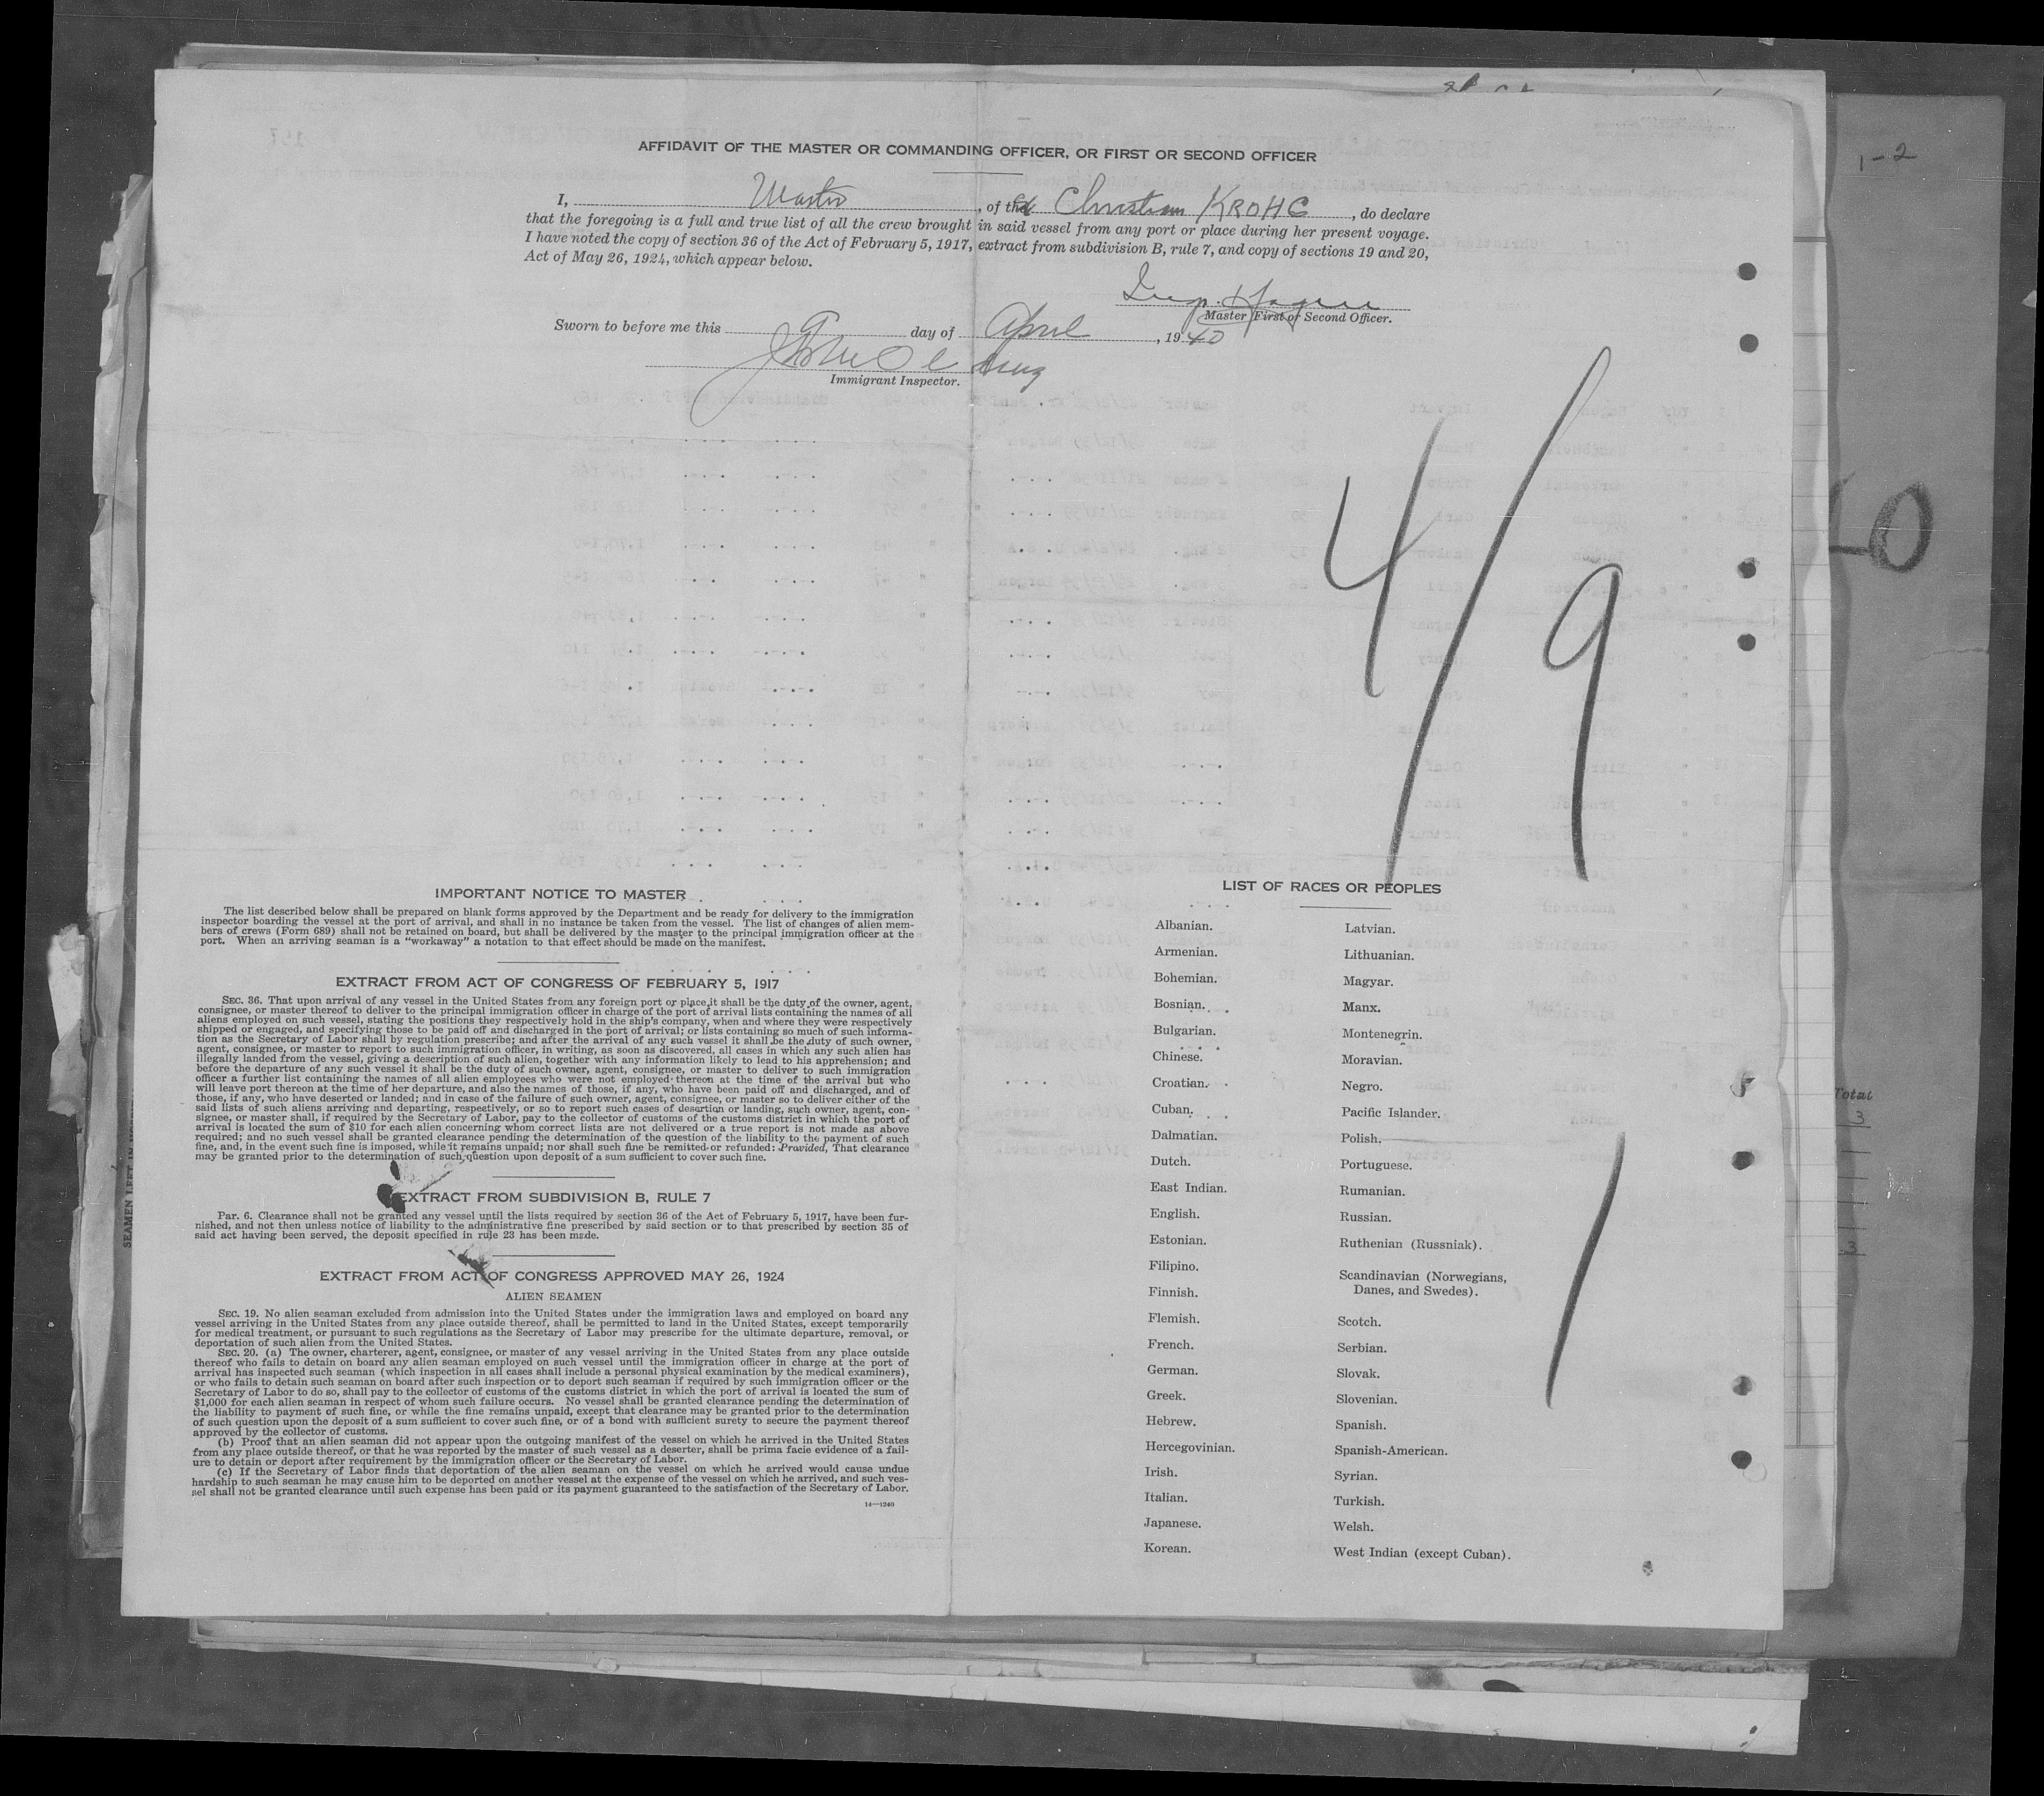 1-2
AFFIDAVIT OF THE MASTER OR COMMANDING OFFICER, OR FIRST OR SECOND OFFICER
I, Master, of the Christian KROHG, do declare
that the foregoing is a full and true list of all the crew brought in said vessel from any port or place during her present voyage.
I have noted the copy of section 36 of the Act of February 5, 1917, extract from subdivision B, rule 7, and copy of sections 19 and 20,
Act of May 26, 1924, which appear below.
Hagen
Master First or Second Officer.
Sworn to before me this 9 day of April, 1940
Immigrant Inspector.
4/9
IMPORTANT NOTICE TO MASTER
The list described below shall be prepared on blank forms approved by the Department and be ready for delivery to the immigration
inspector boarding the vessel at the port of arrival, and shall in no instance be taken from the vessel. The list of changes of alien mem-
bers of crews (Form 689) shall not be retained on board, but shall be delivered by the master to the principal immigration officer at the
port. When an arriving seaman is a "workaway" a notation to that effect should be made on the manifest.
EXTRACT FROM ACT OF CONGRESS OF FEBRUARY 5, 1917
SEC. 36. That upon arrival of any vessel in the United States from any foreign port or place it shall be the duty of the owner, agent,
consignee, or master thereof to deliver to the principal immigration officer in charge of the port of arrival lists containing the names of all
aliens employed on such vessel, stating the positions they respectively hold in the ship's company, when and where they were respectively
shipped or engaged, and specifying those to be paid off and discharged in the port of arrival; or lists containing so much of such informa-
tion as the Secretary of Labor shall by regulation prescribe; and after the arrival of any such vessel it shall be the duty of such owner,
agent, consignee, or master to report to such immigration officer, in writing, as soon as discovered, all cases in which any such alien has
illegally landed from the vessel, giving a description of such alien, together with any information likely to lead to his apprehension; and
before the departure of any such vessel it shall be the duty of such owner, agent, consignee, or master to deliver to such immigration
officer a further list containing the names of all alien employees who were not employed thereon at the time of the arrival but who
will leave port thereon at the time of her departure, and also the names of those, if any, who have been paid off and discharged, and of
those, if any, who have deserted or landed; and in case of the failure of such owner, agent, consignee, or master so to deliver either of the
said lists of such aliens arriving and departing, respectively, or so to report such cases of desertion or landing, such owner, agent, con-
signee, or master shall, if required by the Secretary of Labor, pay to the collector of customs of the customs district in which the port of
arrival is located the sum of $10 for each alien concerning whom correct lists are not delivered or a true report is not made as above
required; and no such vessel shall be granted clearance pending the determination of the question of the liability to the payment of such
fine, and, in the event such fine is imposed, while it remains unpaid; nor shall such fine be remitted or refunded: Provided, That clearance
may be granted prior to the determination of such question upon deposit of a sum sufficient to cover such fine.
EXTRACT FROM SUBDIVISION B, RULE 7
Par. 6. Clearance shall not be granted any vessel until the lists required by section 36 of the Act of February 5, 1917, have been fur-
nished, and not then unless notice of liability to the administrative fine prescribed by said section or to that prescribed by section 35 of
said act having been served, the deposit specified in rule 23 has been made.
EXTRACT FROM ACT OF CONGRESS APPROVED MAY 26, 1924
ALIEN SEAMEN
SEC. 19. No alien seaman excluded from admission into the United States under the immigration laws and employed on board any
vessel arriving in the United States from any place outside thereof, shall be permitted to land in the United States, except temporarily
for medical treatment, or pursuant to such regulations as the Secretary of Labor may prescribe for the ultimate departure, removal, or
deportation of such alien from the United States.
SEC. 20. (a) The owner, charterer, agent, consignee, or master of any vessel arriving in the United States from any place outside
thereof who fails to detain on board any alien seaman employed on such vessel until the immigration officer in charge at the port of
arrival has inspected such seaman (which inspection in all cases shall include a personal physical examination by the medical examiners),
or who fails to detain such seaman on board after such inspection or to deport such seaman if required by such immigration officer or the
Secretary of Labor to do so, shall pay to the collector of customs of the customs district in which the port of arrival is located the sum of
$1,000 for each alien seaman in respect of whom such failure occurs. No vessel shall be granted clearance pending the determination of
the liability to payment of such fine, or while the fine remains unpaid, except that clearance may be granted prior to the determination
of such question upon the deposit of a sum sufficient to cover such fine, or of a bond with sufficient surety to secure the payment thereof
approved by the collector of customs.
(b) Proof that an alien seaman did not appear upon the outgoing manifest of the vessel on which he arrived in the United States
from any place outside thereof, or that he was reported by the master of such vessel as a deserter, shall be prima facie evidence of a fail-
ure to detain or deport after requirement by the immigration officer or the Secretary of Labor.
(c) If the Secretary of Labor finds that deportation of the alien seaman on the vessel on which he arrived would cause undue
hardship to such seaman he may cause him to be deported on another vessel at the expense of the vessel on which he arrived, and such ves-
sel shall not be granted clearance until such expense has been paid or its payment guaranteed to the satisfaction of the Secretary of Labor.
14—1240
LIST OF RACES OR PEOPLES
Albanian.
Armenian.
Bohemian.
Bosnian.
Bulgarian.
Chinese.
Croatian.
Cuban.
Dalmatian.
Dutch.
East Indian.
English.
Estonian.
Filipino.
Finnish.
Flemish.
French.
German.
Greek.
Hebrew.
Hercegovinian.
Irish.
Italian.
Japanese.
Korean.
Latvian.
Lithuanian.
Magyar.
Manx.
Montenegrin.
Moravian.
Negro.
Pacific Islander.
Polish.
Portuguese.
Rumanian.
Russian.
Ruthenian (Russniak).
Scandinavian (Norwegians,
Danes, and Swedes).
Scotch.
Serbian.
Slovak.
Slovenian.
Spanish.
Spanish-American.
Syrian.
Turkish.
Welsh.
West Indian (except Cuban).
Total
3
3
SEAMEN LEFT IN